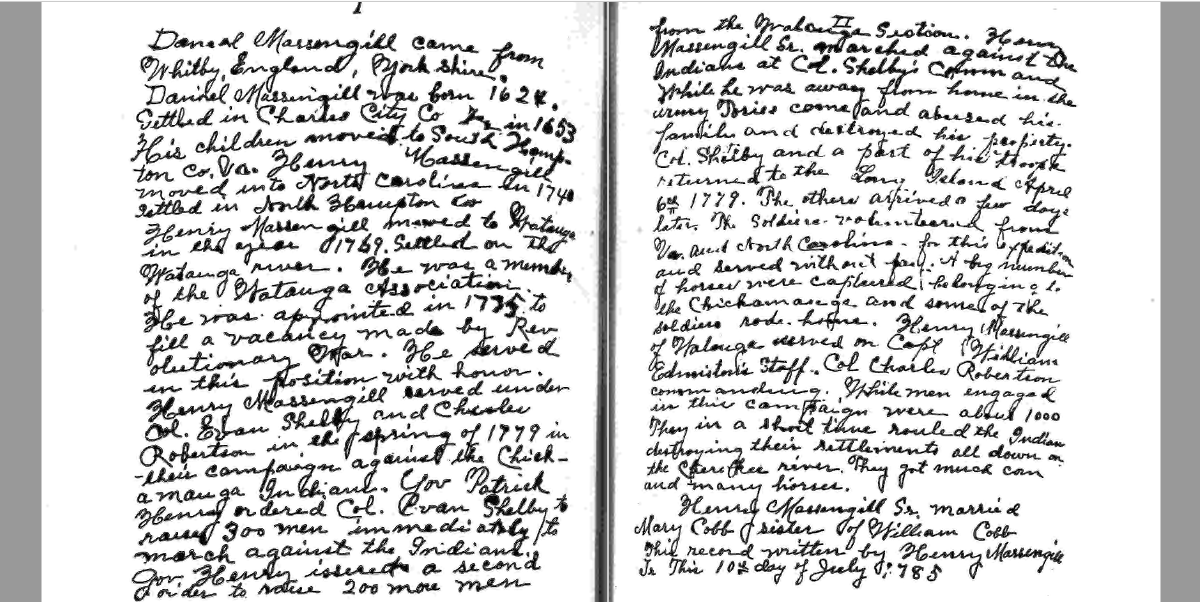 1
Daneal Massengill came from
Whitby, England, York shire.
Daniel Massengill was born 1624.
Settled in Charles City Co Va in 1653
His children moved to South Hamp-
ton Co. Va. Henry Massengill
moved into North Carolina in 1740
settled in North Hampton Co
Henry Massengill moved to Watauga
in the year 1769. Settled on the
Watauga river. He was a member
of the Watauga Association.
He was appointed in 1775 to
fill a vacancy made by Rev
olutionary War. He served
in this position with honor.
Henry Massengill served under
Col. Evan Shelby and Charles
Robertson in the spring of 1779 in
their campaign against the Chick-
amauga Indians. Gov Patrick
Henry ordered Col. Evan Shelby to
raise 300 men immediately to
march against the Indians.
Gov. Henry issued a second
order to raise 200 more men
II
from the Watauga Section. Henry
Massengill Sr. marched against the
Indians at Col. Shelby's Command
While he was away from home in the
army Tories come and abused his
family and destroyed his property.
Col. Shelby and a part of his troops
returned to the Long Island April
6th 1779. The others arrived a few days
later. The Soldiers volunteered from
Va. and North Carolina for this expedition
and served without pay. A big number
of horses were captured belonging to
the Chickamauga and some of the
soldiers rode home. Henry Massengill
of Watauga served on Capt William
Edmiston's Staff. Col Charles Robertson
commanding. White men engaged
in this campaign were about 1000
They in a short time routed the Indian
destroying their settlements all down on
the Cherokee river. They got much corn
and many horses.
Henry Massengill Sr. married
Mary Cobb sister of William Cobb
This record written by Henry Massengill
Jr This 10th day of July 1785